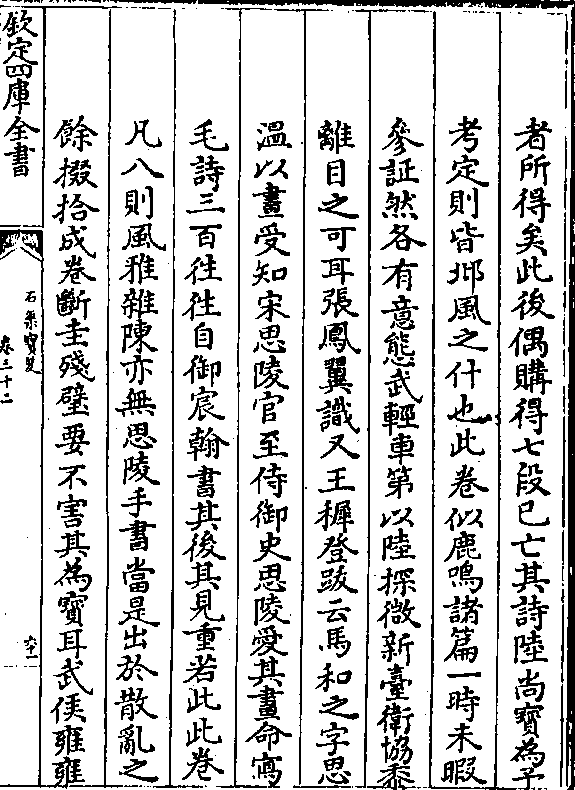 者所得矣此後偶購得七段已亡其詩陸尚寶為予
考定則皆邶風之什也此卷似鹿鳴諸篇一時未暇
參証然各有意態武輕車第以陸探微新臺衛協黍
離目之可耳張鳳翼識又王穉登跋云馬和之字思
溫以畫受知宋思陵官至侍御史思陵愛其畫命寫
毛詩三百徃徃自御宸翰書其後其見重若此此卷
凡八則風雅雜陳亦無思陵手書當是出於散亂之
餘掇拾成卷斷圭殘璧要不害其為寶耳武侯雍雍
欽定四庫全書
石渠寶笈
卷三十二
六十一